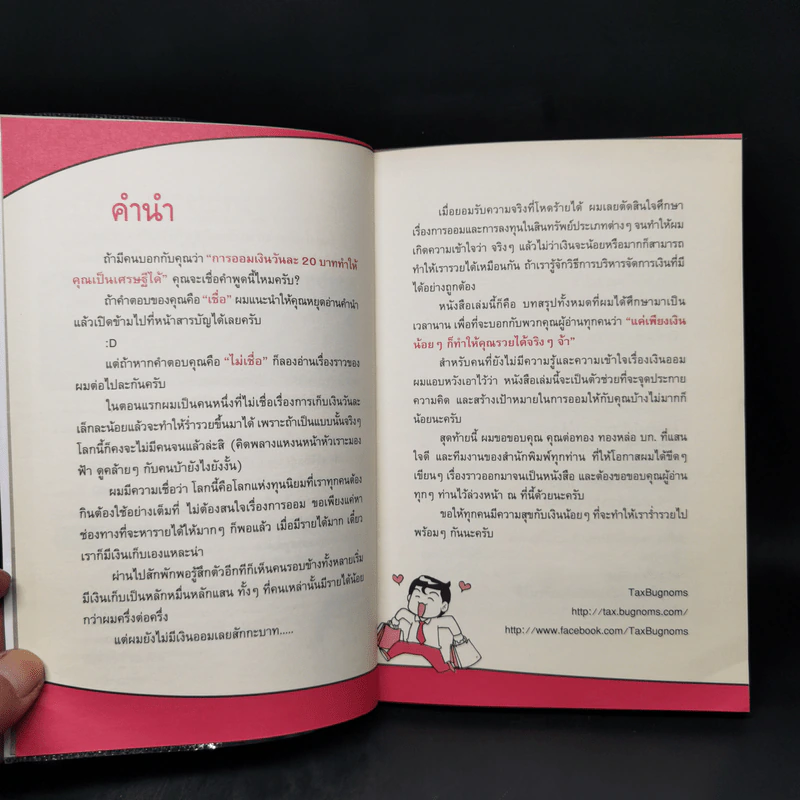 คำนำ
ถ้ามีคนบอกกับคุณว่า “การออมเงินวันละ 20 บาททำให้
คุณเป็นเศรษฐีได้” คุณจะเชื่อคำพูดนี้ไหมครับ?
ถ้าคำตอบของคุณคือ “เชื่อ” ผมแนะนำให้คุณหยุดอ่านคำนำ
แล้วเปิดข้ามไปที่หน้าสารบัญได้เลยครับ
:D
แต่ถ้าหากคำตอบคุณคือ “ไม่เชื่อ” ก็ลองอ่านเรื่องราวของ
ผมต่อไปละกันครับ
ในตอนแรกผมเป็นคนหนึ่งที่ไม่เชื่อเรื่องการเก็บเงินวันละ
เล็กละน้อยแล้วจะทำให้ร่ำรวยขึ้นมาได้ เพราะถ้าเป็นแบบนั้นจริงๆ
โลกนี้ก็คงจะไม่มีคนจนแล้วล่ะสิ (คิดพลางแหงนหน้าหัวเราะมอง
ฟ้า ดูคล้ายๆ กับคนบ้ายังไงยังงั้น)
ผมมีความเชื่อว่า โลกนี้คือโลกแห่งทุนนิยมที่เราทุกคนต้อง
กินต้องใช้อย่างเต็มที่ ไม่ต้องสนใจเรื่องการออม ขอเพียงแค่หา
ช่องทางที่จะหารายได้ให้มากๆ ก็พอแล้ว เมื่อมีรายได้มาก เดี๋ยว
เราก็มีเงินเก็บเองแหละน่า
ผ่านไปสักพักพอรู้สึกตัวอีกทีก็เห็นคนรอบข้างทั้งหลายเริ่ม
มีเงินเก็บเป็นหลักหมื่นหลักแสน ทั้งๆ ที่คนเหล่านั้นมีรายได้น้อย
กว่าผมครึ่งต่อครึ่ง
แต่ผมยังไม่มีเงินออมเลยสักกะบาท.....
เมื่อยอมรับความจริงที่โหดร้ายได้ ผมเลยตัดสินใจศึกษา
เรื่องการออมและการลงทุนในสินทรัพย์ประเภทต่างๆ จนทำให้ผม
เกิดความเข้าใจว่า จริงๆ แล้วไม่ว่าเงินจะน้อยหรือมากก็สามารถ
ทำให้เรารวยได้เหมือนกัน ถ้าเรารู้จักวิธีการบริหารจัดการเงินที่มี
ได้อย่างถูกต้อง
หนังสือเล่มนี้ก็คือ บทสรุปทั้งหมดที่ผมได้ศึกษามาเป็น
เวลานาน เพื่อที่จะบอกกับพวกคุณผู้อ่านทุกคนว่า “แค่เพียงเงิน
น้อยๆ ก็ทำให้คุณรวยได้จริงๆ จ้า”
สำหรับคนที่ยังไม่มีความรู้และความเข้าใจเรื่องเงินออม
ผมแอบหวังเอาไว้ว่า หนังสือเล่มนี้จะเป็นตัวช่วยที่จะจุดประกาย
ความคิด และสร้างเป้าหมายในการออมให้กับคุณบ้างไม่มากก็
น้อยนะครับ
สุดท้ายนี้ ผมขอขอบคุณ คุณต่อทอง ทองหล่อ บก. ที่แสน
ใจดี และทีมงานของสำนักพิมพ์ทุกท่าน ที่ให้โอกาสผมได้ขีดๆ
เขียนๆ เรื่องราวออกมาจนเป็นหนังสือ และต้องขอบคุณผู้อ่าน
ทุกๆ ท่านไว้ล่วงหน้า ณ ที่นี้ด้วยนะครับ
ขอให้ทุกคนมีความสุขกับเงินน้อยๆ ที่จะทำให้เราร่ำรวยไป
พร้อมๆ กันนะครับ
TaxBugnoms
http://tax.bugnoms.com/
http://www.facebook.com/TaxBugnoms